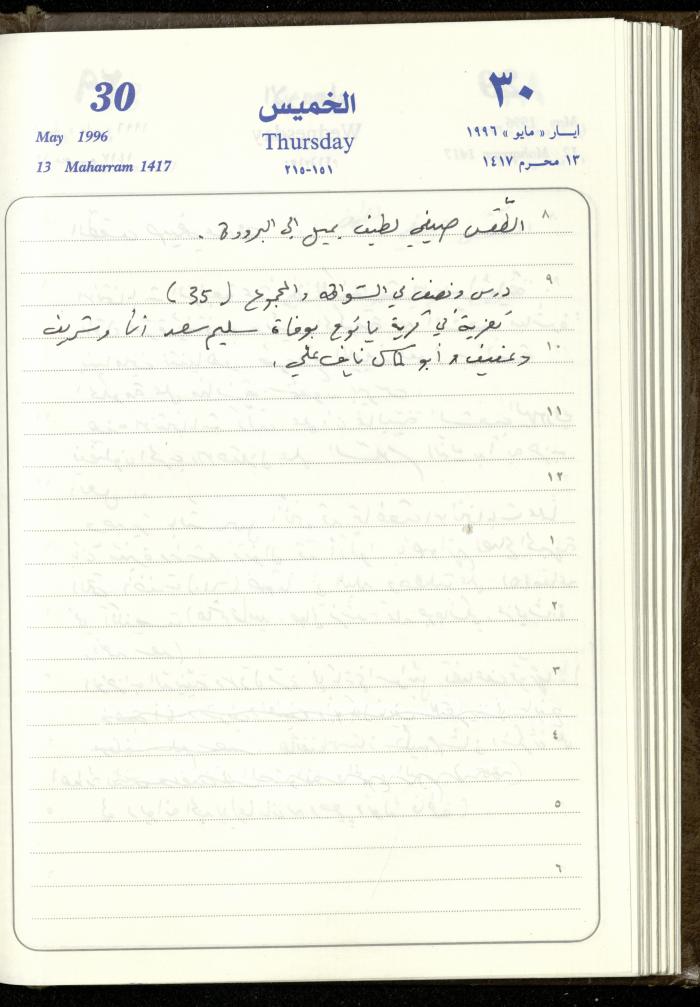 30
الخميس
٣٠
May 1996
Thursday
ايار « مايو » ١٩٩٦
13 Maharram 1417
٢١٥-١٥١
١٣ محرم ١٤١٧
٨ الطّقس صيفي لطيف يميل الى البرودة .
٩ درس ونصف في الشواقة والمجموع (35)
تعزية في قرية يانوح بوفاة سليم سعد أنا وشريف
١٠ وعفيف وأبو كمال نايف علي .
١١
١٢
١
٢
٣
٤
٥
٦